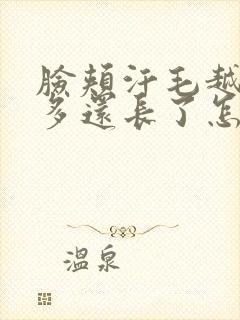 臉頰汗毛越
多還長了怎
溫泉